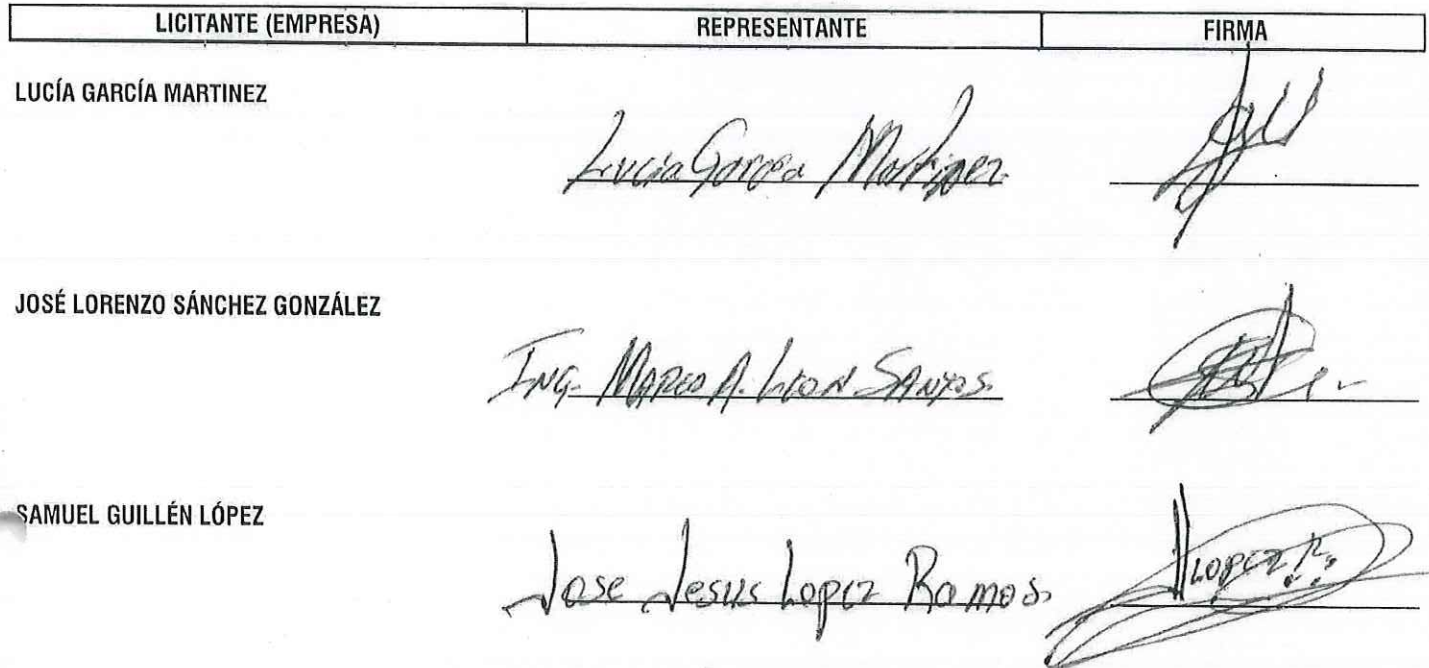 LICITANTE (EMPRESA) REPRESENTANTE FIRMA
LUCÍA GARCÍA MARTINEZ
Lucia Garcia Martinez
JOSÉ LORENZO SÁNCHEZ GONZÁLEZ
ING. MARCO A. LEON SANTOS.
SAMUEL GUILLÉN LÓPEZ
Jose Jesus Lopez Ramos. JLopez R.